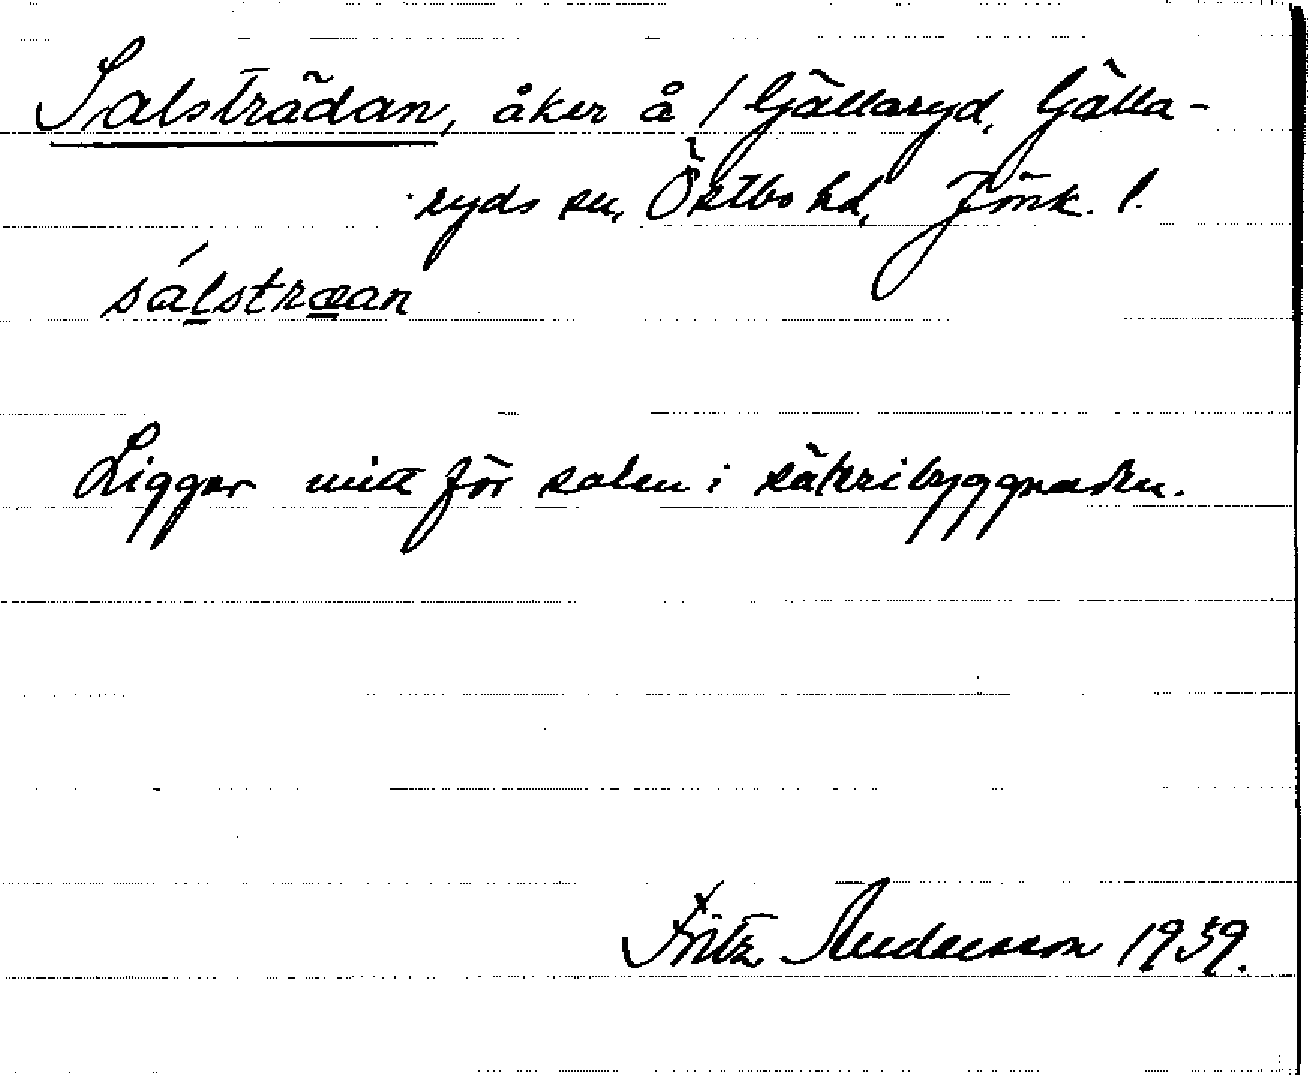 Salsträdan, åker å / Gällaryd, Gälla-
ryds sn, Östbo hd, Jönk. l.
sálstræan
Ligger mitt för salen i säteribyggnaden.
Fritz Andersson 1939.